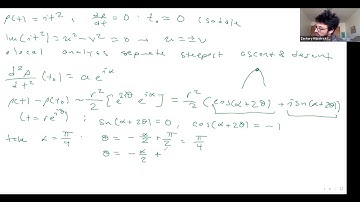 ρ(t) = it², dρ/dt = 0 : t₀ = 0 (saddle
Im(it²) = u² - v² = 0 → u = ±v
local analysis separate steepest ascent & descent
d²ρ/dt² (t₀) = a e^{iα}
ρ(t) - ρ(t₀) ~ r²/2 [e^{2iθ} e^{iα}] = r²/2 (cos(α+2θ) + i sin(α+2θ))
(t = re^{iθ}) : sin(α+2θ) = 0, cos(α+2θ) = -1
take α = π/4 : θ = -α/2 + π/2 = π/4
θ = -α/2 +